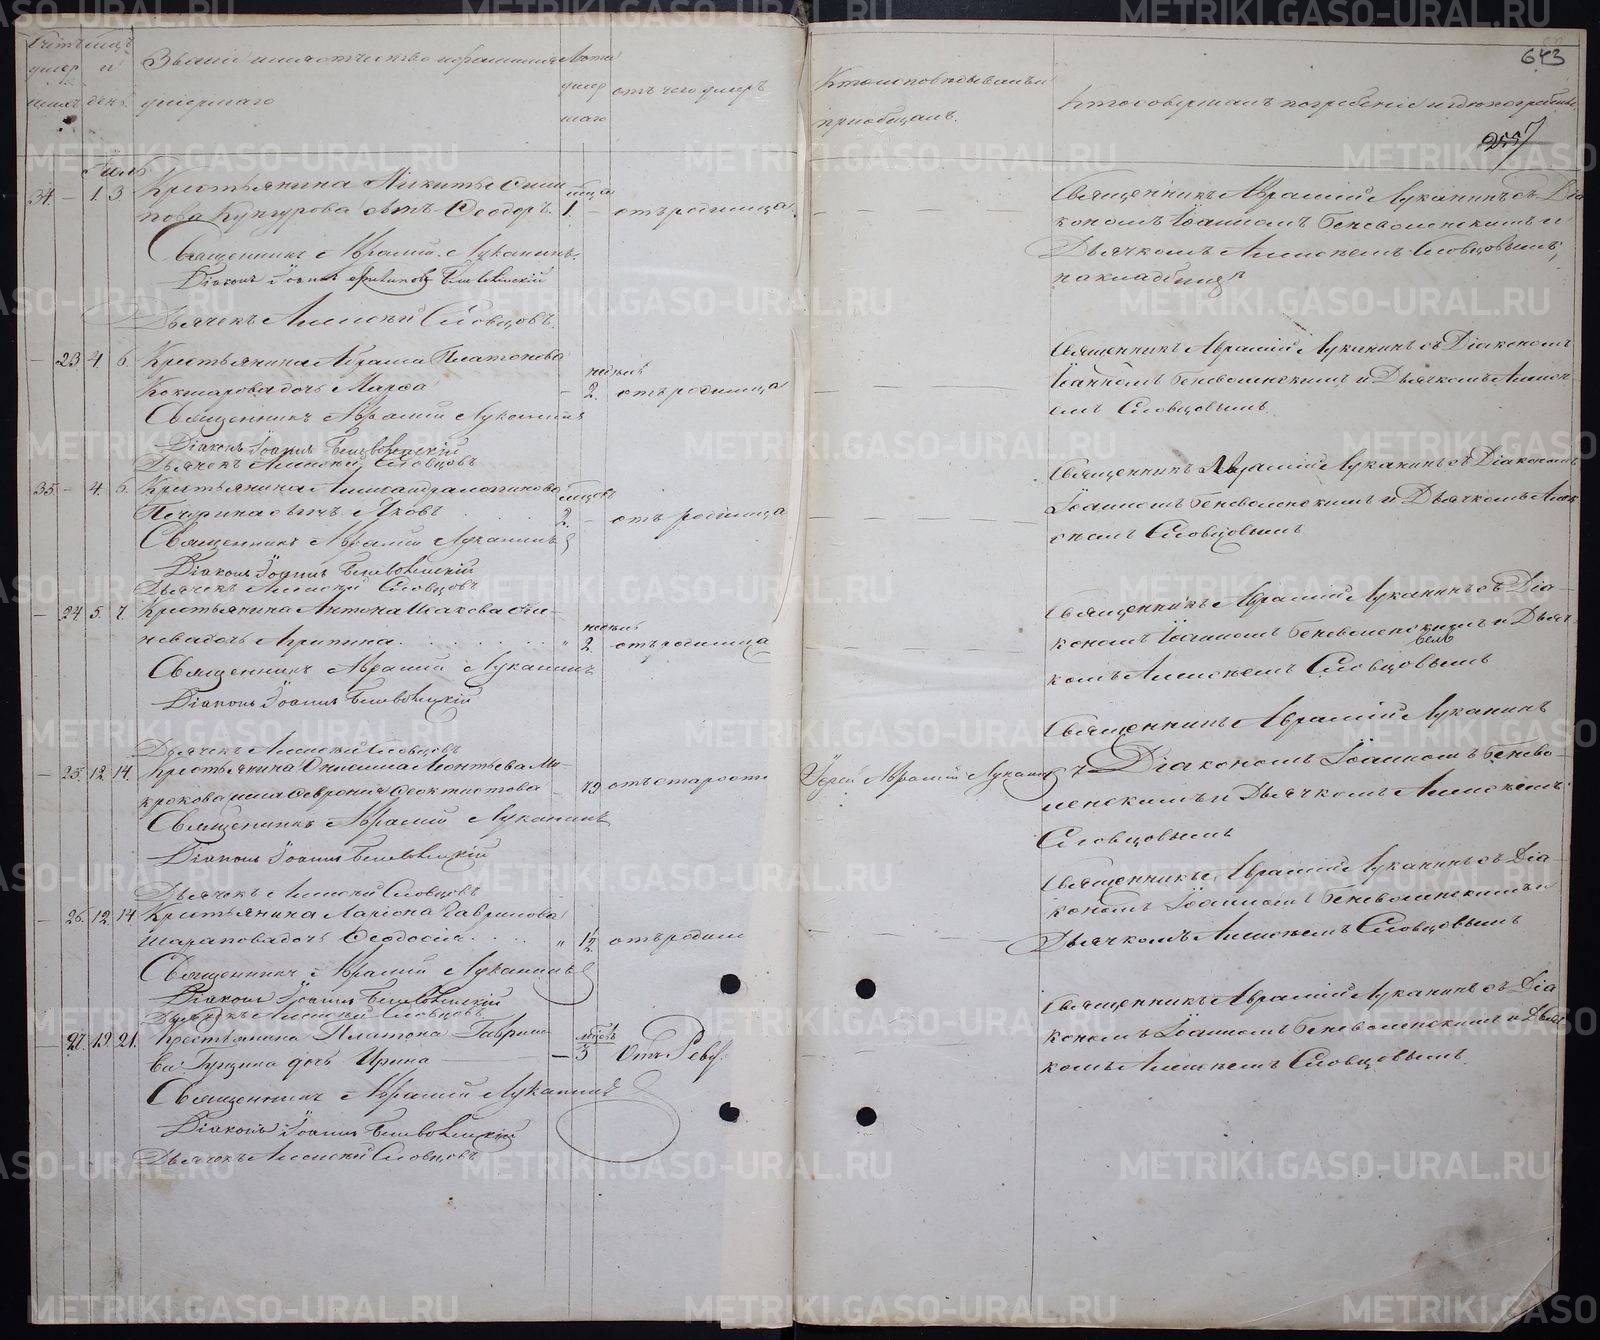 Счетъ умер шихъ
мцъ и день
Званiе имя отчество и фамилiя умершаго
Лета умер шаго
отъ чего умеръ
Кто исповѣдывалъ и прiобщалъ.
Кто совершалъ погребенiе и гдѣ погребены
643
257
Iюль
34. – 1. 3. Крестьянина Никиты
пова Кунгурова сынъ Ѳеодоръ. 1. – отъ родимца
Священникъ Аврамiй Луканинъ.
Дiаконъ Iоаннъ Беневоленскiй
Дьячекъ Алексѣй Словцовъ.
Священникъ Аврамiй Луканинъ съ Дiа
кономъ Iоанномъ Беневоленскимъ и
Дьячкомъ Алексѣемъ Словцовымъ,
на кладбищѣ
– 23 4. 6. Крестьянина Абрама Платонова
Кокшарова дочь Марѳа – недѣль 2. отъ родимца
Священникъ Аврамiй Луканинъ
Дiаконъ Iоаннъ Беневоленскiй
Дьячекъ Алексѣй Словцовъ
Священникъ Аврамiй Луканинъ съ Дiакономъ
Iоанномъ Беневоленскимъ и Дьячкомъ Алексѣ
емъ Словцовымъ.
35 – 4. 6. Крестьянина Александра Логинова
Печурина сынъ Яковъ мцовъ 2. – отъ родимца
Священникъ Аврамiй Луканинъ
Дiаконъ Iоаннъ Беневоленскiй
Дьячекъ Алексѣй Словцовъ
Священникъ Аврамiй Луканинъ съ Дiакономъ
Iоанномъ Беневоленскимъ и Дьячкомъ Алек
сѣемъ Словцовымъ
– 24 5. 7. Крестьянина Антона Исакова
нева дочь Агрипина. недѣль 2. отъ родимца
Священникъ Аврамiй Луканинъ
Дiаконъ Iоаннъ Беневоленскiй
Дьячекъ Алексѣй Словцовъ
Священникъ Аврамiй Луканинъ съ Дiа–
кономъ Iоанномъ Беневоленскимъ и Дьяч
комъ Алексѣемъ Словцовымъ
– 25. 12. 14. Крестьянина Онисима Леонтьева Ми–
крюкова жена Ѳеврониiя Ѳеоктистова – 79 отъ старости
Священникъ Аврамiй Луканинъ
Дiаконъ Iоаннъ Беневоленскiй
Дьячекъ Алексѣй Словцовъ
Iерей Аврамiй Луканинъ
Священникъ Аврамiй Луканинъ
съ Дiакономъ Iоанномъ Бенево–
ленскимъ и Дьячкомъ Алексѣемъ
Словцовымъ
– 26. 12. 14. Крестьянина Ларiона Гаврилова
Шарапова дочь Ѳеодосiя. 1/2 отъ родим
Священникъ Аврамiй Луканинъ
Дiаконъ Iоаннъ Беневоленскiй
Дьячекъ Алексѣй Словцовъ
Священникъ Аврамiй Луканинъ съ Дiа–
кономъ Iоанномъ Беневоленскимъ и
Дьячкомъ Алексѣемъ Словцовымъ
– 27. 19. 21. Крестьянина Платона Гаврило
ва дочь Ирина – мцовъ 3 Отъ
Священникъ Аврамiй Луканинъ
Дiаконъ Iоаннъ Беневоленскiй
Дьячекъ Алексѣй Словцовъ
Священникъ Аврамiй Луканинъ съ Дiа
кономъ Iоанномъ Беневоленскимъ и Дьяч
комъ Алексѣемъ Словцовымъ.
METRIKI.GASO-URAL.RU